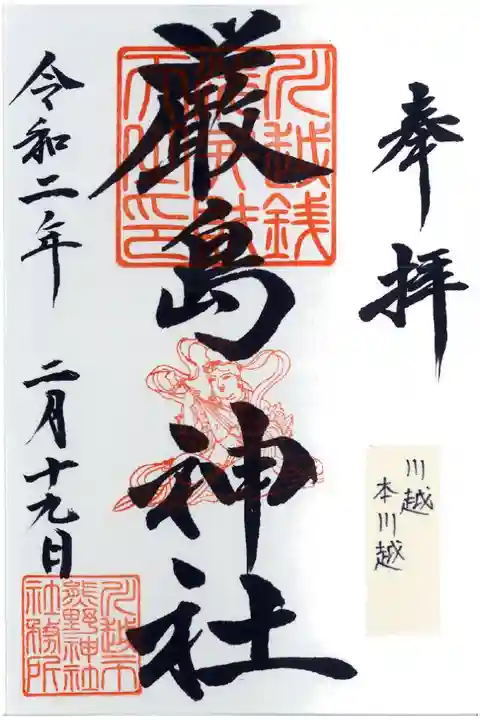 奉拝
川越
本川越
厳島神社
川越銭
令和二年 二月十九日
川越市
熊野神社
社務所